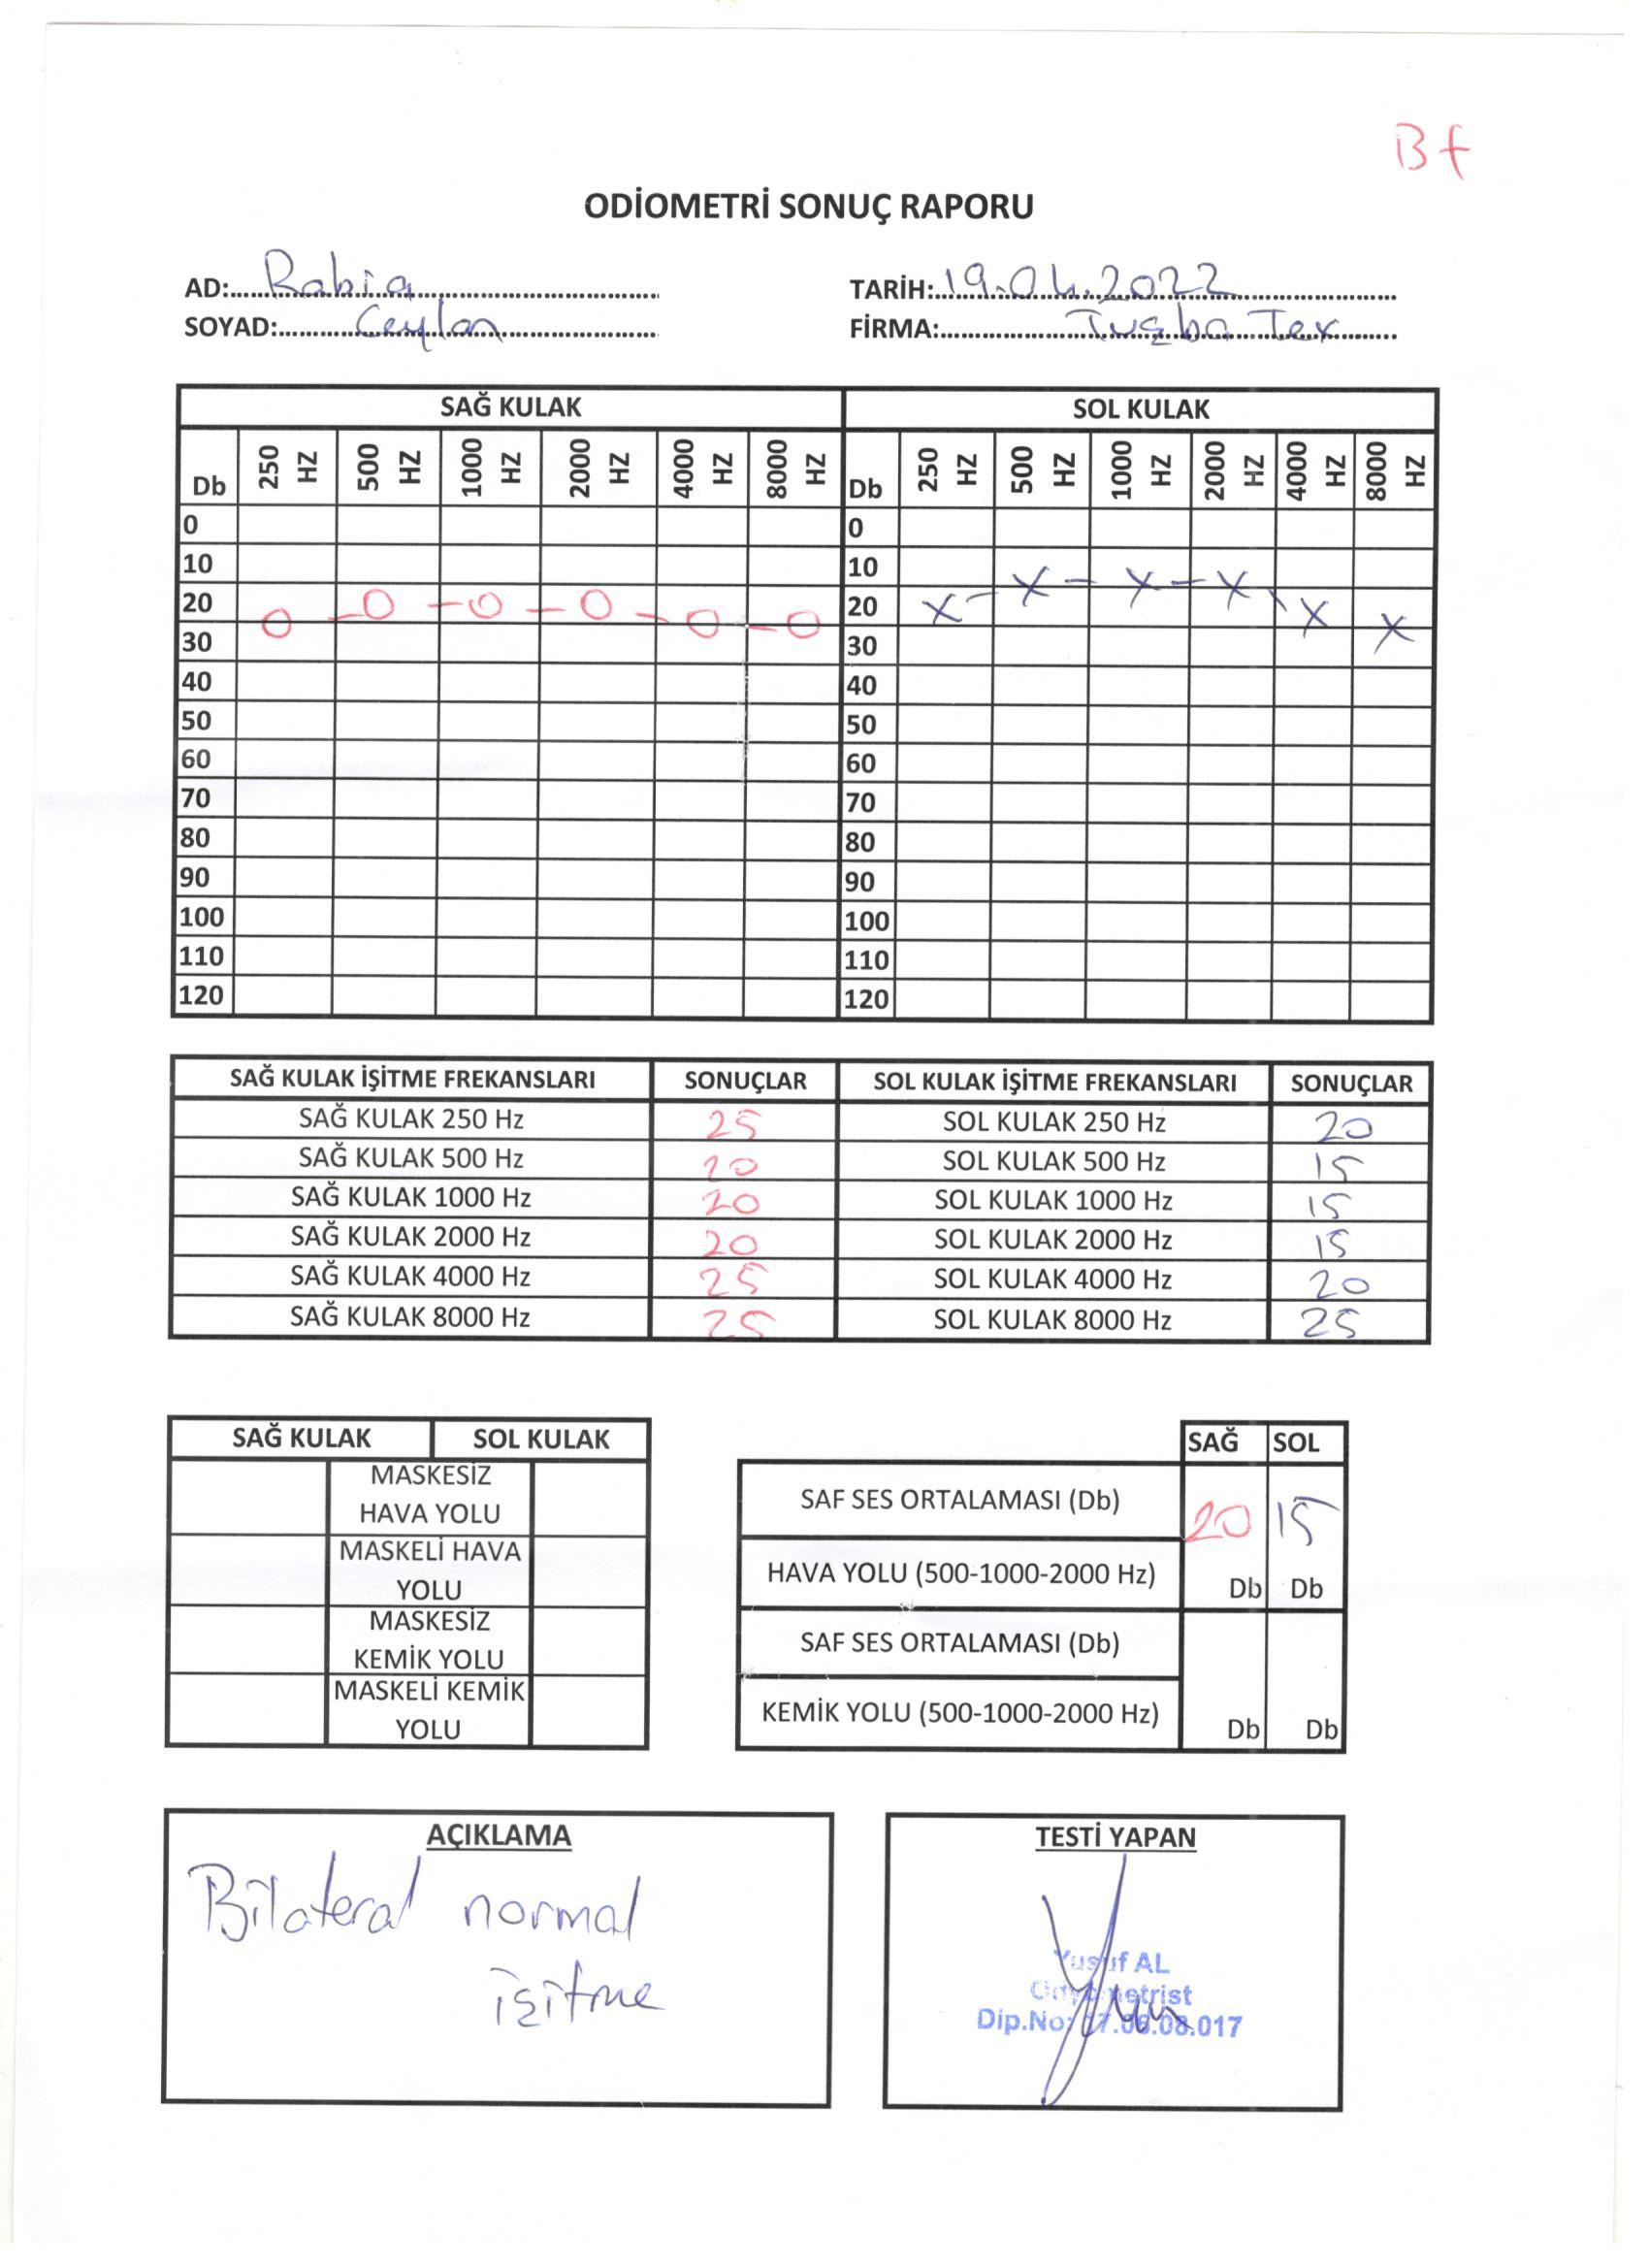 Bf
ODİOMETRİ SONUÇ RAPORU
AD: Rabia
TARİH: 19.04.2022
SOYAD: Ceylan
FİRMA: Tuğba Tex
SAĞ KULAK SOL KULAK
Db 250 HZ 500 HZ 1000 HZ 2000 HZ 4000 HZ 8000 HZ Db 250 HZ 500 HZ 1000 HZ 2000 HZ 4000 HZ 8000 HZ
0 0
10 10
20 20
30 30
40 40
50 50
60 60
70 70
80 80
90 90
100 100
110 110
120 120
SAĞ KULAK İŞİTME FREKANSLARI SONUÇLAR SOL KULAK İŞİTME FREKANSLARI SONUÇLAR
SAĞ KULAK 250 Hz 25 SOL KULAK 250 Hz 20
SAĞ KULAK 500 Hz 20 SOL KULAK 500 Hz 15
SAĞ KULAK 1000 Hz 20 SOL KULAK 1000 Hz 15
SAĞ KULAK 2000 Hz 20 SOL KULAK 2000 Hz 15
SAĞ KULAK 4000 Hz 25 SOL KULAK 4000 Hz 20
SAĞ KULAK 8000 Hz 25 SOL KULAK 8000 Hz 25
SAĞ KULAK SOL KULAK
MASKESİZ
HAVA YOLU
MASKELİ HAVA
YOLU
MASKESİZ
KEMİK YOLU
MASKELİ KEMİK
YOLU
SAĞ SOL
SAF SES ORTALAMASI (Db) 20 15
HAVA YOLU (500-1000-2000 Hz) Db Db
SAF SES ORTALAMASI (Db)
KEMİK YOLU (500-1000-2000 Hz) Db Db
AÇIKLAMA
Bilateral normal
işitme
TESTİ YAPAN
Yusuf AL
Odyometrist
Dip.No: 17.06.08.017